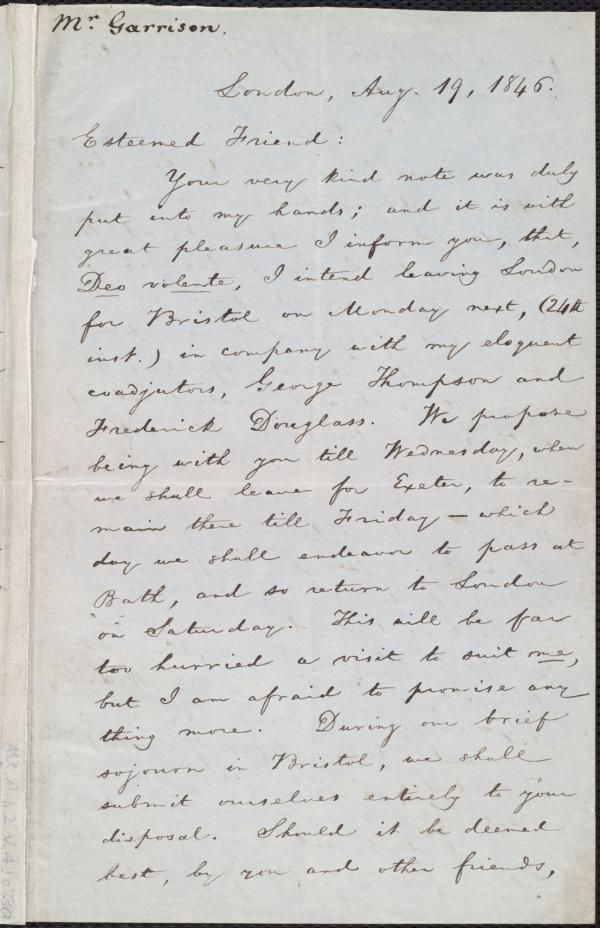 Mr. Garrison.
London, Aug. 19, 1846.
Esteemed Friend:
Your very kind note was duly
put into my hands; and it is with
great pleasure I inform you, that,
Deo volente, I intend leaving London
for Bristol on Monday next, (24th
inst.) in company with my eloquent
coadjutors, George Thompson and
Frederick Douglass. We propose
being with you till Wednesday, when
we shall leave for Exeter, to re-
main there till Friday — which
day we shall endeavor to pass at
Bath, and so return to London
on Saturday. This will be far
too hurried a visit to suit me,
but I am afraid to promise any
thing more. During our brief
sojourn in Bristol, we shall
submit ourselves entirely to your
disposal. Should it be deemed
best, by you and other friends,